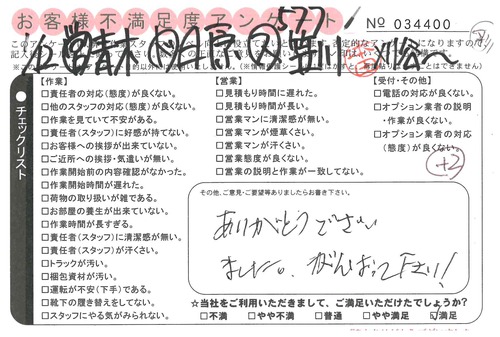 お客様不満足度アンケート
№ 034400
チェックリスト
【作業】
□責任者の対応(態度)が良くない。
□他のスタッフの対応(態度)が良くない。
□作業を見ていて不安がある。
□責任者(スタッフ)に好感が持てない。
□お客様への挨拶が出来ていない。
□ご近所への挨拶・気遣いが無い。
□作業開始前の内容確認がなかった。
□作業開始時間が遅れた。
□荷物の取り扱いが雑である。
□お部屋の養生が出来ていない。
□作業時間が長すぎる。
□責任者(スタッフ)に清潔感が無い。
□責任者(スタッフ)が汗くさい。
□トラックが汚い。
□梱包資材が汚い。
□運転が不安(下手)である。
□靴下の履き替えをしてない。
□スタッフにやる気がみられない。
【営業】
□見積もり時間に遅れた。
□見積もり時間が長い。
□営業マンに清潔感が無い。
□営業マンが煙草くさい。
□営業マンが汗くさい。
□営業態度が良くない。
□営業の説明と作業が一致してない。
【受付・その他】
□電話の対応が良くない。
□オプション業者の説明
・作業が良くない。
□オプション業者の対応
(態度)が良くない。
+2
その他、ご意見・ご要望等ありましたらお書き下さい。
ありがとうござい
ました。がんばって下さい!
☆当社をご利用いただきまして、ご満足いただけたでしょうか?
□不満 □やや不満 □普通 □やや満足 ☑満足